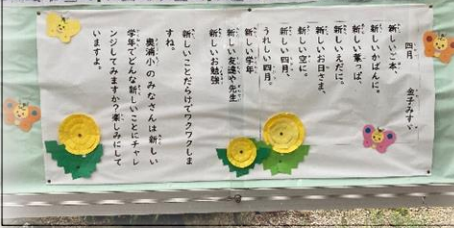 四月 金子みすゞ
新しいご本、
新しいかばんに。
新しい葉っぱ、
新しいえだに。
新しいお日さま、
新しい空に。
新しい四月、
うれしい四月。
新しい学年
新しい友達や先生
新しいお勉強
新しいことだらけでワクワクしま
すね。
奥浦小のみなさんは新しい
学年でどんな新しいことにチャレ
ンジしてみますか？楽しみにして
いますよ。